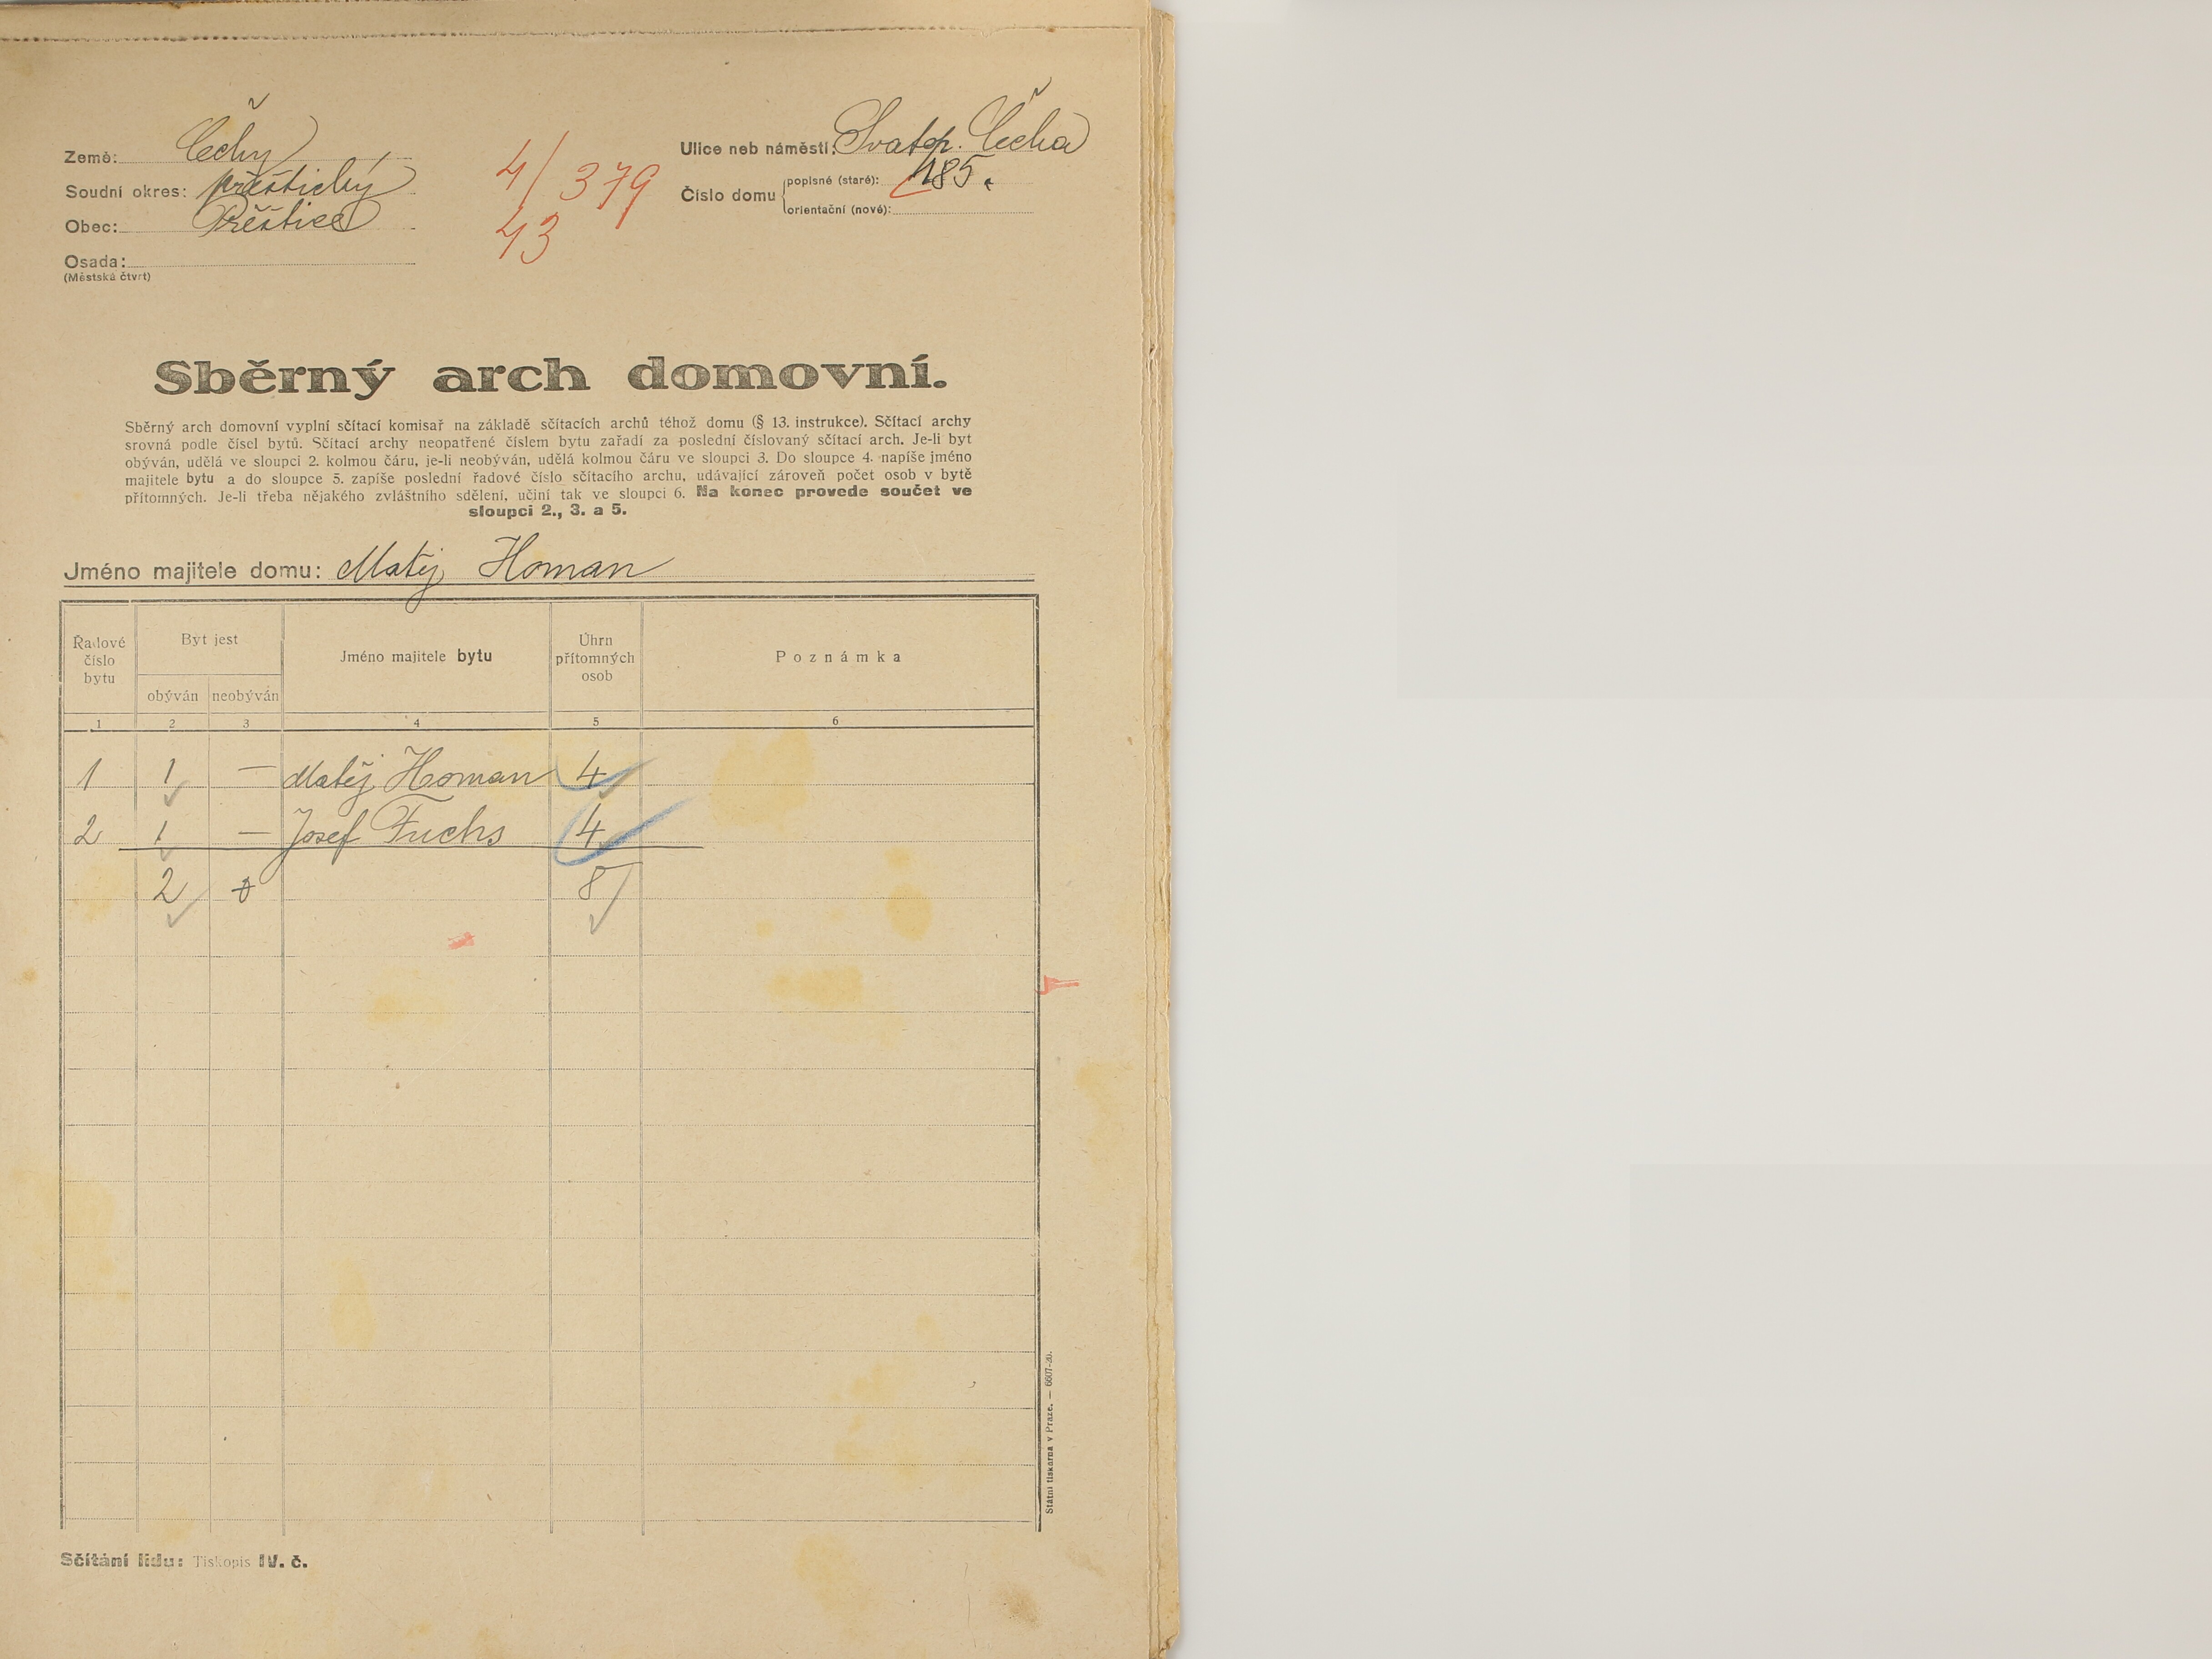 Země: Čechy
Soudní okres: přeštický
Obec: Přeštice
Osada:
(Městská čtvrt)
4/379
43
Ulice neb náměstí: Svatop. Čecha
Číslo domu
popisné (staré): 185.
orientační (nové):
Sběrný arch domovní.
Sběrný arch domovní vyplní sčítací komisař na základě sčítacích archů téhož domu (§ 13. instrukce). Sčítací archy
srovná podle čísel bytů. Sčítací archy neopatřené číslem bytu zařadí za poslední číslovaný sčítací arch. Je-li byt
obýván, udělá ve sloupci 2. kolmou čáru, je-li neobýván, udělá kolmou čáru ve sloupci 3. Do sloupce 4. napíše jméno
majitele bytu a do sloupce 5. zapíše poslední řadové číslo sčítacího archu, udávající zároveň počet osob v bytě
přítomných. Je-li třeba nějakého zvláštního sdělení, učiní tak ve sloupci 6. Na konec provede součet ve
sloupci 2., 3. a 5.
Jméno majitele domu: Matěj Homan
Řadové číslo bytu
Byt jest
obýván neobýván
Jméno majitele bytu
Úhrn přítomných osob
Poznámka
1 2 3 4 5 6
1 1 — Matěj Homan 4
2 1 — Josef Fuchs 4
2 0 8
Státní tiskárna v Praze. — 6607-20.
Sčítání lidu: Tiskopis IV. č.